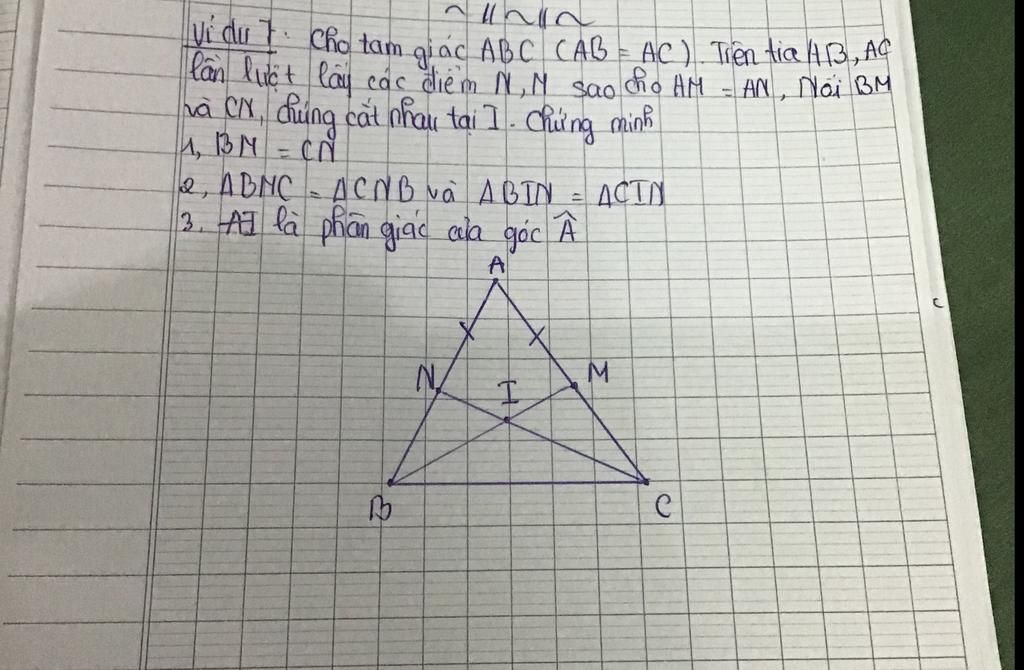 Ví dụ 7. Cho tam giác ABC (AB = AC). Trên tia AB, AC
lần lượt lấy các điểm N, M sao cho AM = AN, Nối BM
và CN, chúng cắt nhau tại I. Chứng minh
1, BM = CN
2, ΔBMC = ΔCNB và ΔBIN = ΔCIM
3. AI là phân giác của góc Â
A
N
I
M
B
C